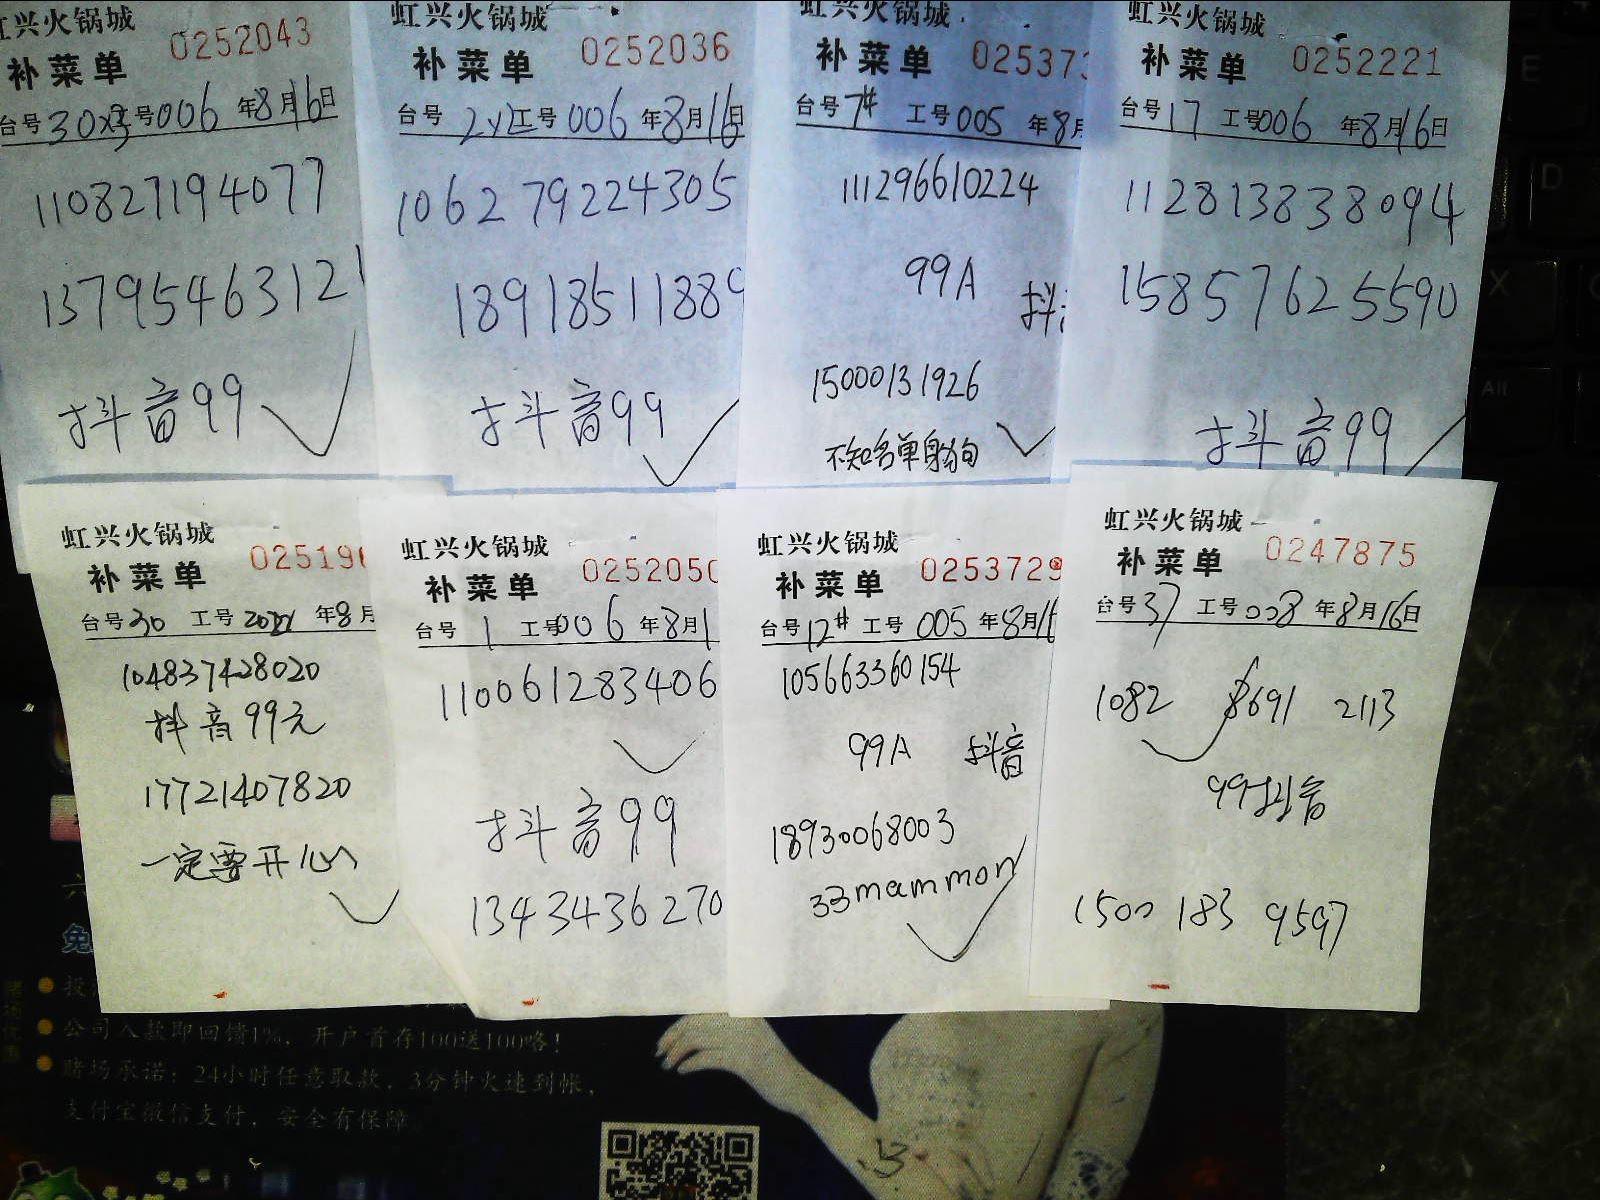 虹兴火锅城
补菜单 0252043
台号 30 号 006 年 8 月 16 日
110827194077
13795463121
抖音99
虹兴火锅城
补菜单 0252036
台号 工号 006 年 8 月 16 日
106279224305
1891851188
抖音99
虹兴火锅城
补菜单 025373
台号 7# 工号 005 年 8
111296610224
99A 抖
15000131926
不知名单身狗
虹兴火锅城
补菜单 0252221
台号 17 工号 006 年 8 月 16 日
112813838094
15857625590
抖音99
虹兴火锅城
补菜单 025196
台号 30 工号 年 8 月
104837428020
抖音99元
17721407820
一定要开心
虹兴火锅城
补菜单 0252050
台号 1 工号 006 年 8 月 1
110061283406
抖音99
1343436270
虹兴火锅城
补菜单 0253729
台号 12# 工号 005 年 8 月 16
105663360154
99A 抖音
18930068003
33mammon
虹兴火锅城
补菜单 0247875
台号 37 工号 008 年 8 月 16 日
1082 8691 2113
99抖音
1500 183 9597
公司入款即回馈1%，开户首存100送100咯！
赌场承诺：24小时任意取款，3分钟火速到帐，
支付宝微信支付，安全有保障
E
D
X
Alt